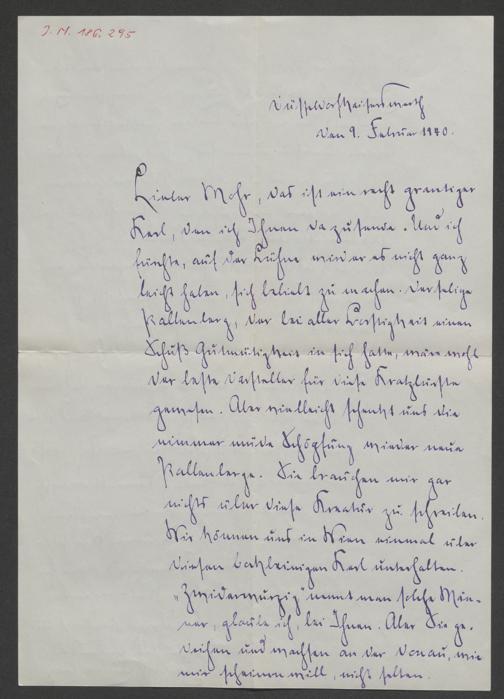 J. N. 186.295
Düsseldorf-Kaiserswerth
den 9. Februar 1940.
Lieber Mohr, das ist ein recht grantiger
Kerl, den ich Ihnen da zusende. Und ich
fürchte, auf der Bühne wird er es nicht ganz
leicht haben, sich beliebt zu machen. Der selige
Pallenberg, der bei aller Borstigkeit einen
Schuß Gutmütigkeit in sich hatte, wäre wohl
der beste Darsteller für diese Kratzbürste
gewesen. Aber vielleicht schenkt uns die
nimmer müde Schöpfung wieder neue
Pallenberge. Sie brauchen mir gar
nichts über diese Kreatur zu schreiben.
Wir können uns in Wien einmal über
diesen Kerl unterhalten.
„Zwiderwurzig" nennt man solche Män-
ner, glaube ich, bei Ihnen. Aber Sie ge-
deihen und wachsen an der Donau, wie
mir scheinen will, nicht selten.